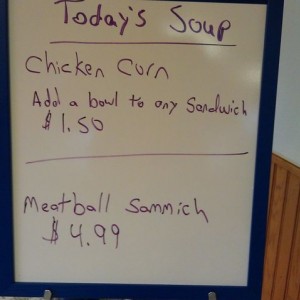 Today's Soup
Chicken Corn
Add a bowl to any Sandwich
$1.50
Meatball Sammich
$4.99